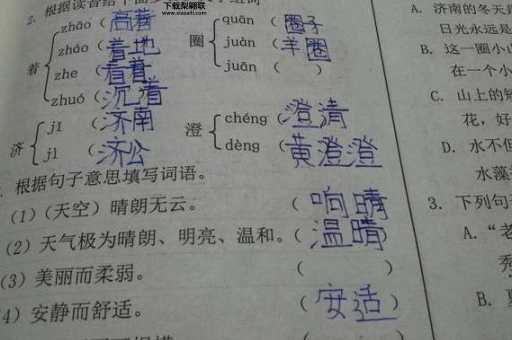 下载梨翩联
www.xiazaiti.com
2. 根据读音给
着
zhāo (高着
zháo (着地
zhe (看着
zhuó (沉着
圈
quān (圈子
juàn (羊圈
juān ( )
济
jǐ (济南
jì (济公
澄
chéng (澄清
dèng (黄澄澄
根据句子意思填写词语。
(1) (天空) 晴朗无云。 (响晴
(2) 天气极为晴朗、明亮、温和。(温晴
(3) 美丽而柔弱。 ( )
4) 安静而舒适。 (安适)
A. 济南的冬天
日光永远是
B. 这一圈小山
在一个小
C. 山上的矮
花,好
D. 水不但
水藻
3. 下列句
A. “老
秀
B.